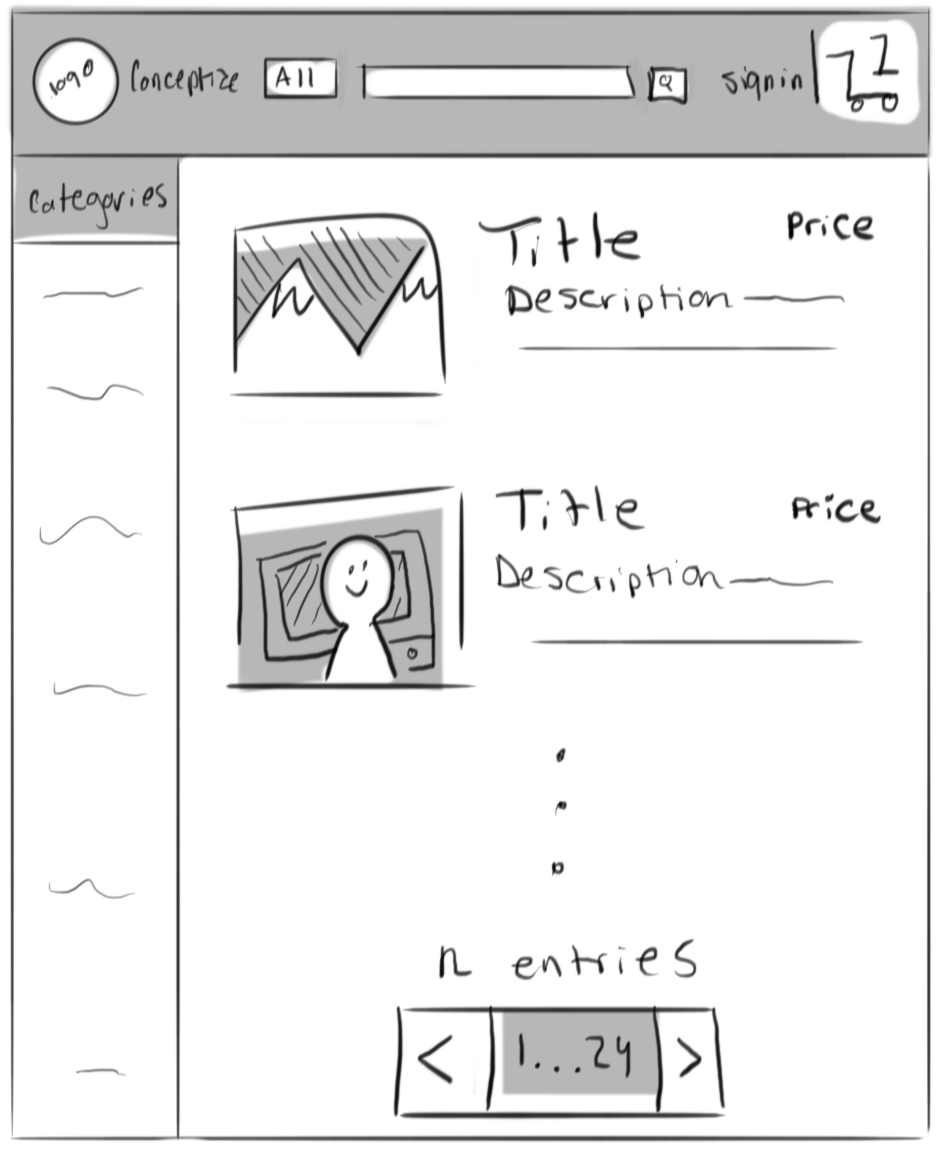 logo Conceptize All Q sign in
Categories
Title Price
Description
Title Price
Description
n entries
< 1...24 >